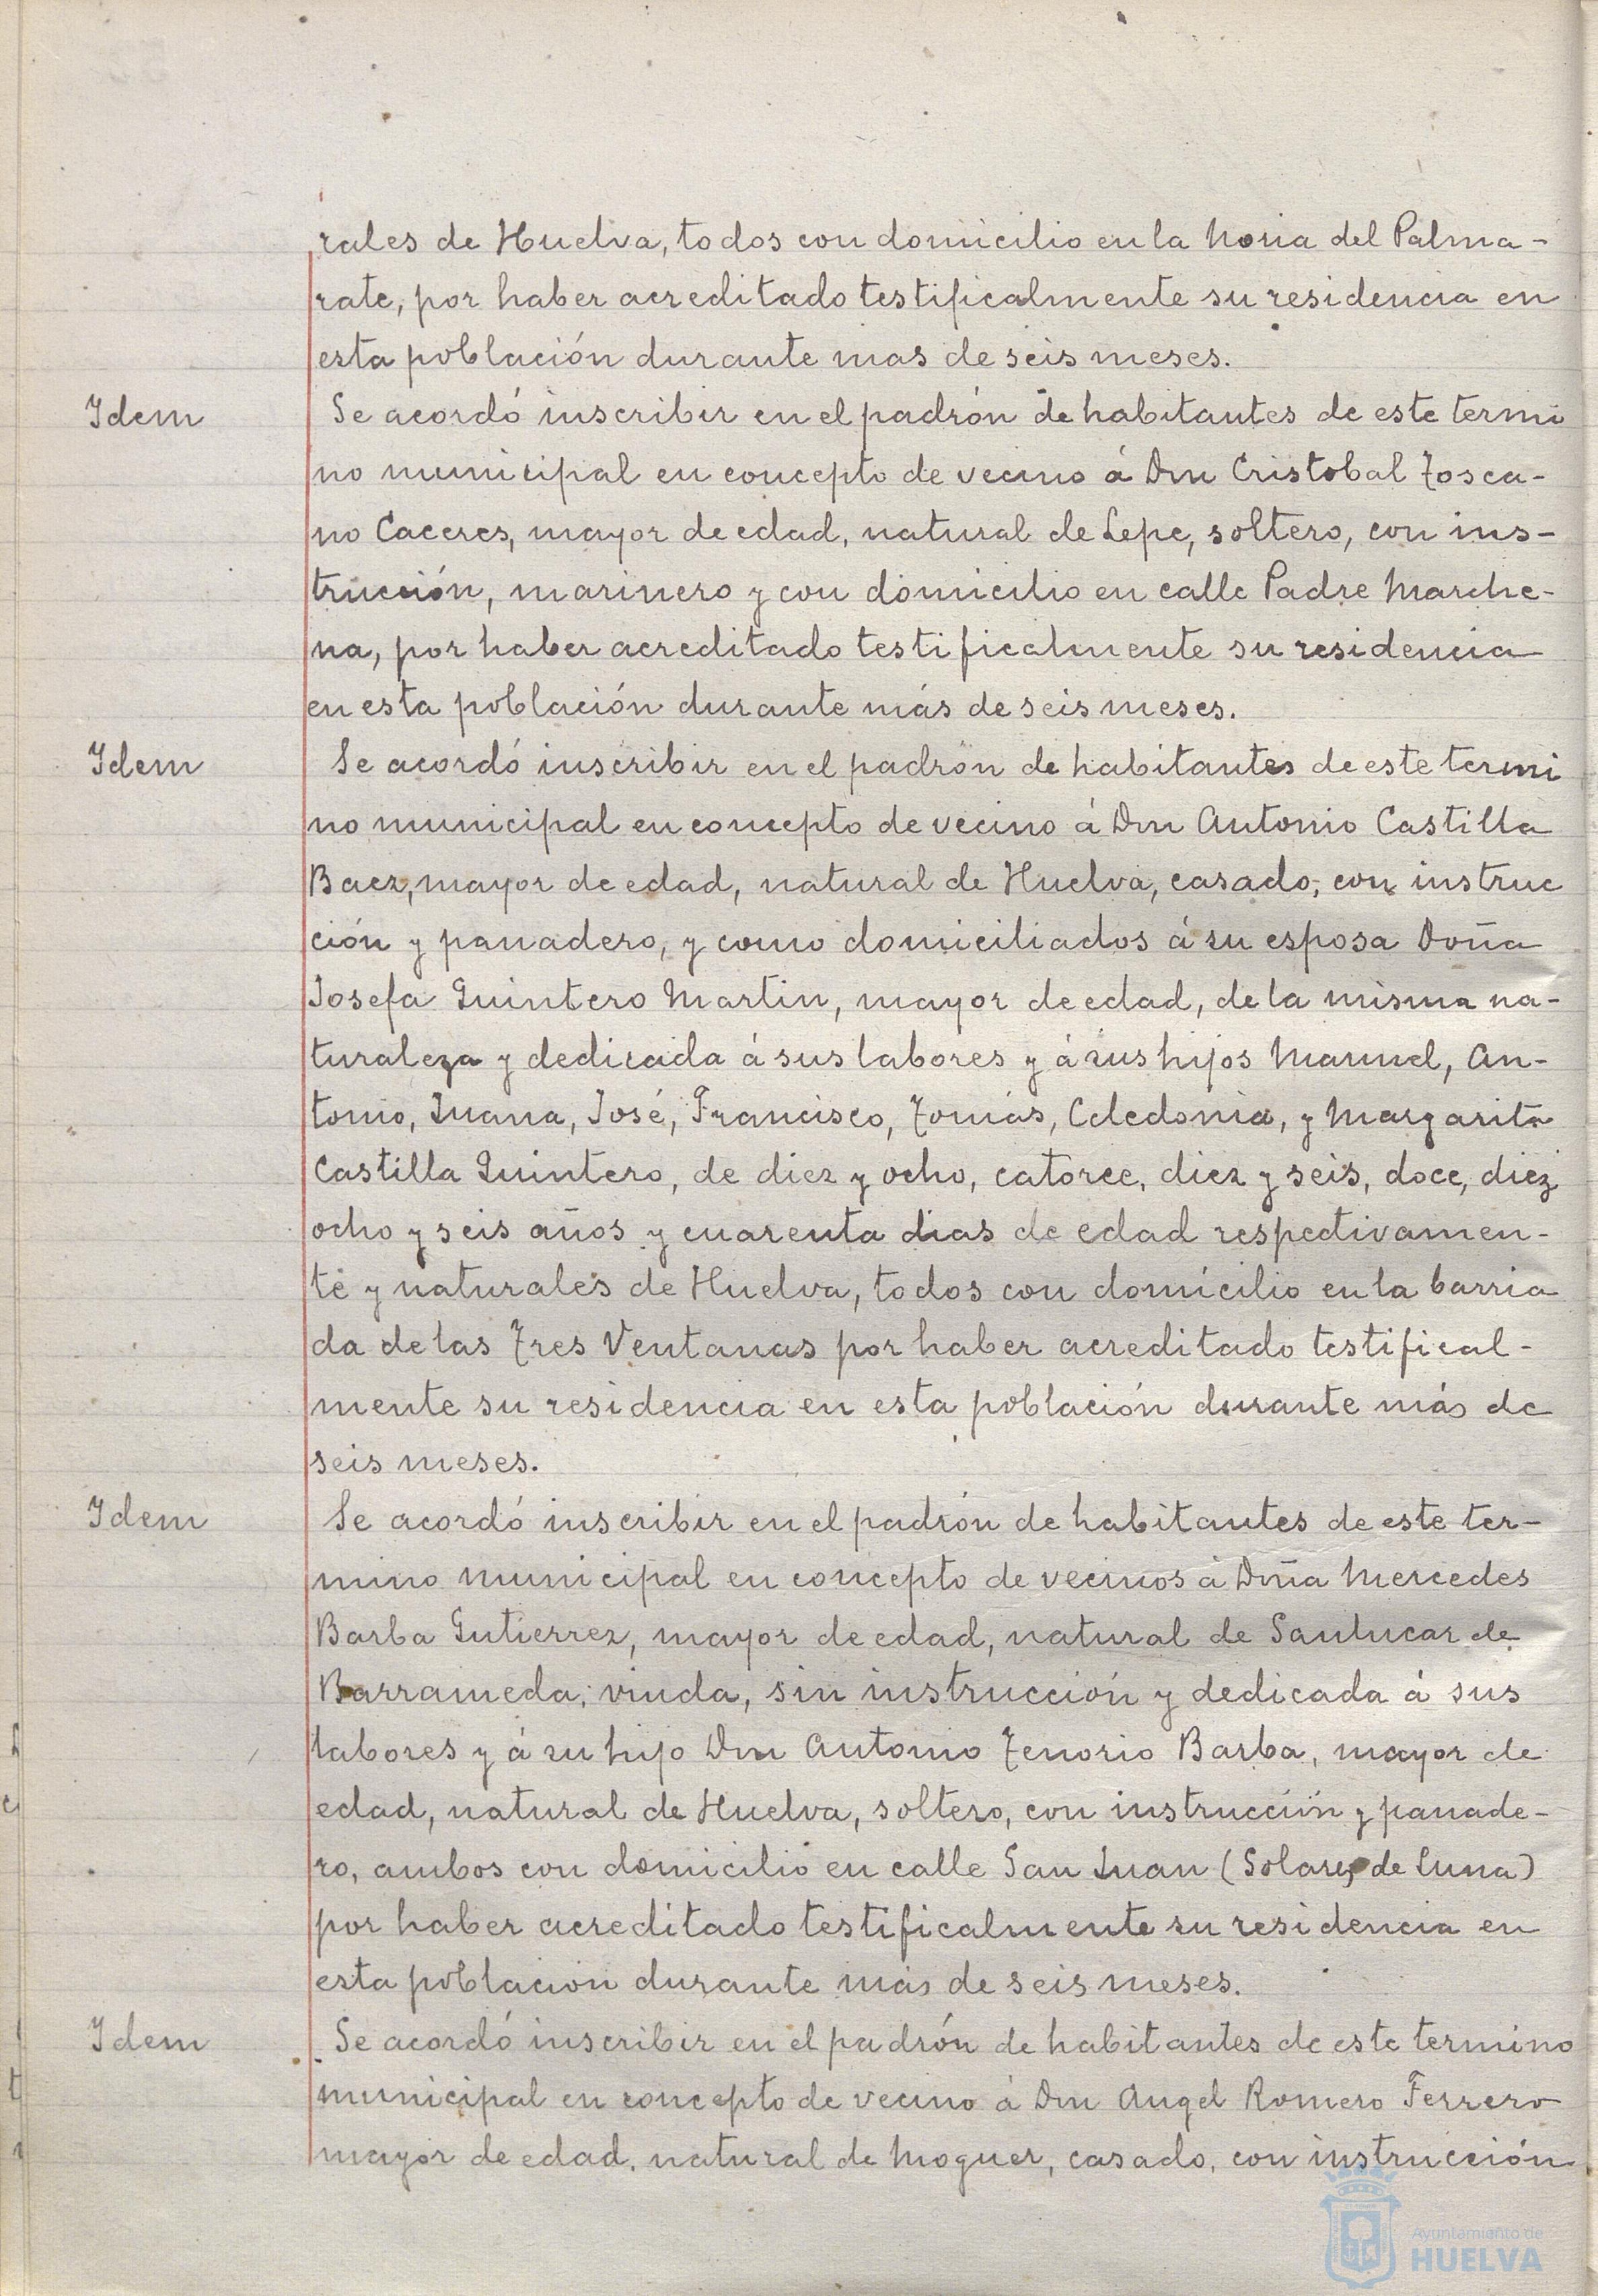 rales de Huelva, todos con domicilio en la Noria del Palma-
rate, por haber acreditado testificalmente su residencia en
esta población durante mas de seis meses.
Idem
Se acordó inscribir en el padrón de habitantes de este termi
no municipal en concepto de vecino á Don Cristobal Tosca-
no Caceres, mayor de edad, natural de Lepe, soltero, con ins-
trucción, marinero y con domicilio en calle Padre Marche-
na, por haber acreditado testificalmente su residencia
en esta población durante más de seis meses.
Idem
Se acordó inscribir en el padrón de habitantes de este termi
no municipal en concepto de vecino á Don Antonio Castilla
Baez, mayor de edad, natural de Huelva, casado, con instruc
ción y panadero, y como domiciliados á su esposa Doña
Josefa Quintero Martin, mayor de edad, de la misma na-
turaleza y dedicada á sus labores y á sus hijos Manuel, An-
tonio, Juana, José, Francisco, Tomás, Celedonia, y Margarita
Castilla Quintero, de diez y ocho, catorce, diez y seis, doce, diez
ocho y seis años y cuarenta dias de edad respectivamen-
te y naturales de Huelva, todos con domicilio en la barria
da de las Tres Ventanas por haber acreditado testifical-
mente su residencia en esta población durante más de
seis meses.
Idem
Se acordó inscribir en el padrón de habitantes de este ter-
mino municipal en concepto de vecinos á Doña Mercedes
Barba Gutierrez, mayor de edad, natural de Sanlucar de
Barrameda, viuda, sin instrucción y dedicada á sus
labores y á su hijo Don Antonio Tenorio Barba, mayor de
edad, natural de Huelva, soltero, con instrucción y panade-
ro, ambos con domicilio en calle San Juan (Solares de Luna)
por haber acreditado testificalmente su residencia en
esta población durante más de seis meses.
Idem
Se acordó inscribir en el padrón de habitantes de este termino
municipal en concepto de vecino á Don Angel Romero Ferrero
mayor de edad, natural de Moguer, casado, con instrucción
Ayuntamiento de
HUELVA